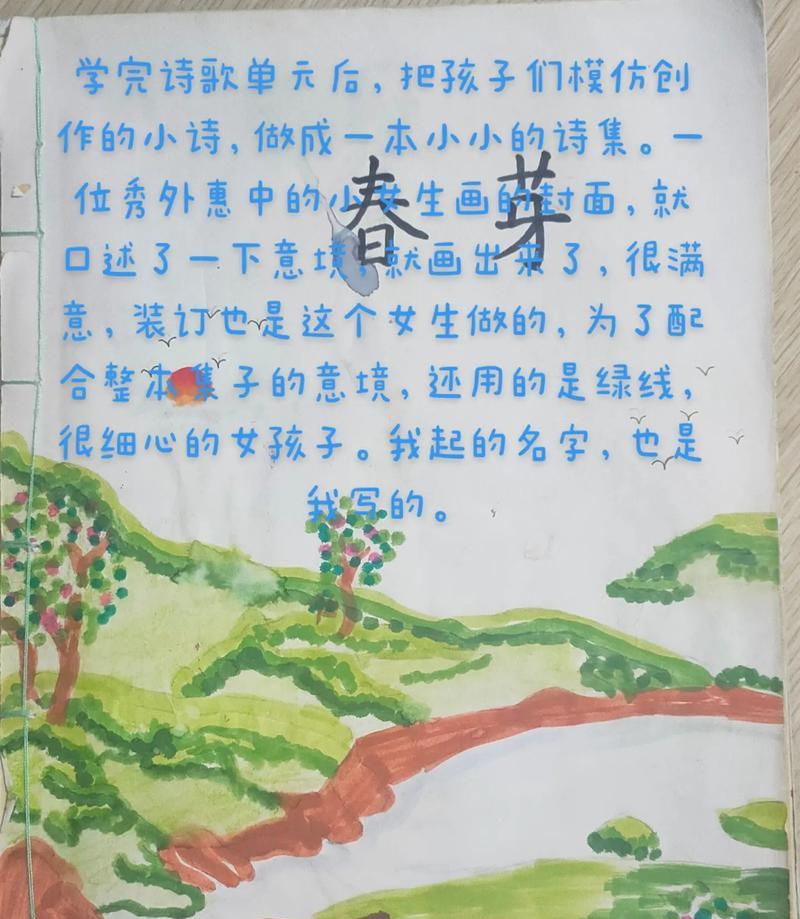 学完诗歌单元后，把孩子们模仿创
作的小诗，做成一本小小的诗集。一
位秀外惠中的小女生画的封面，就
口述了一下意境，就画出来了，很满
意，装订也是这个女生做的，为了配
合整本集子的意境，还用的是绿线，
很细心的女孩子。我起的名字，也是
我写的。
春芽